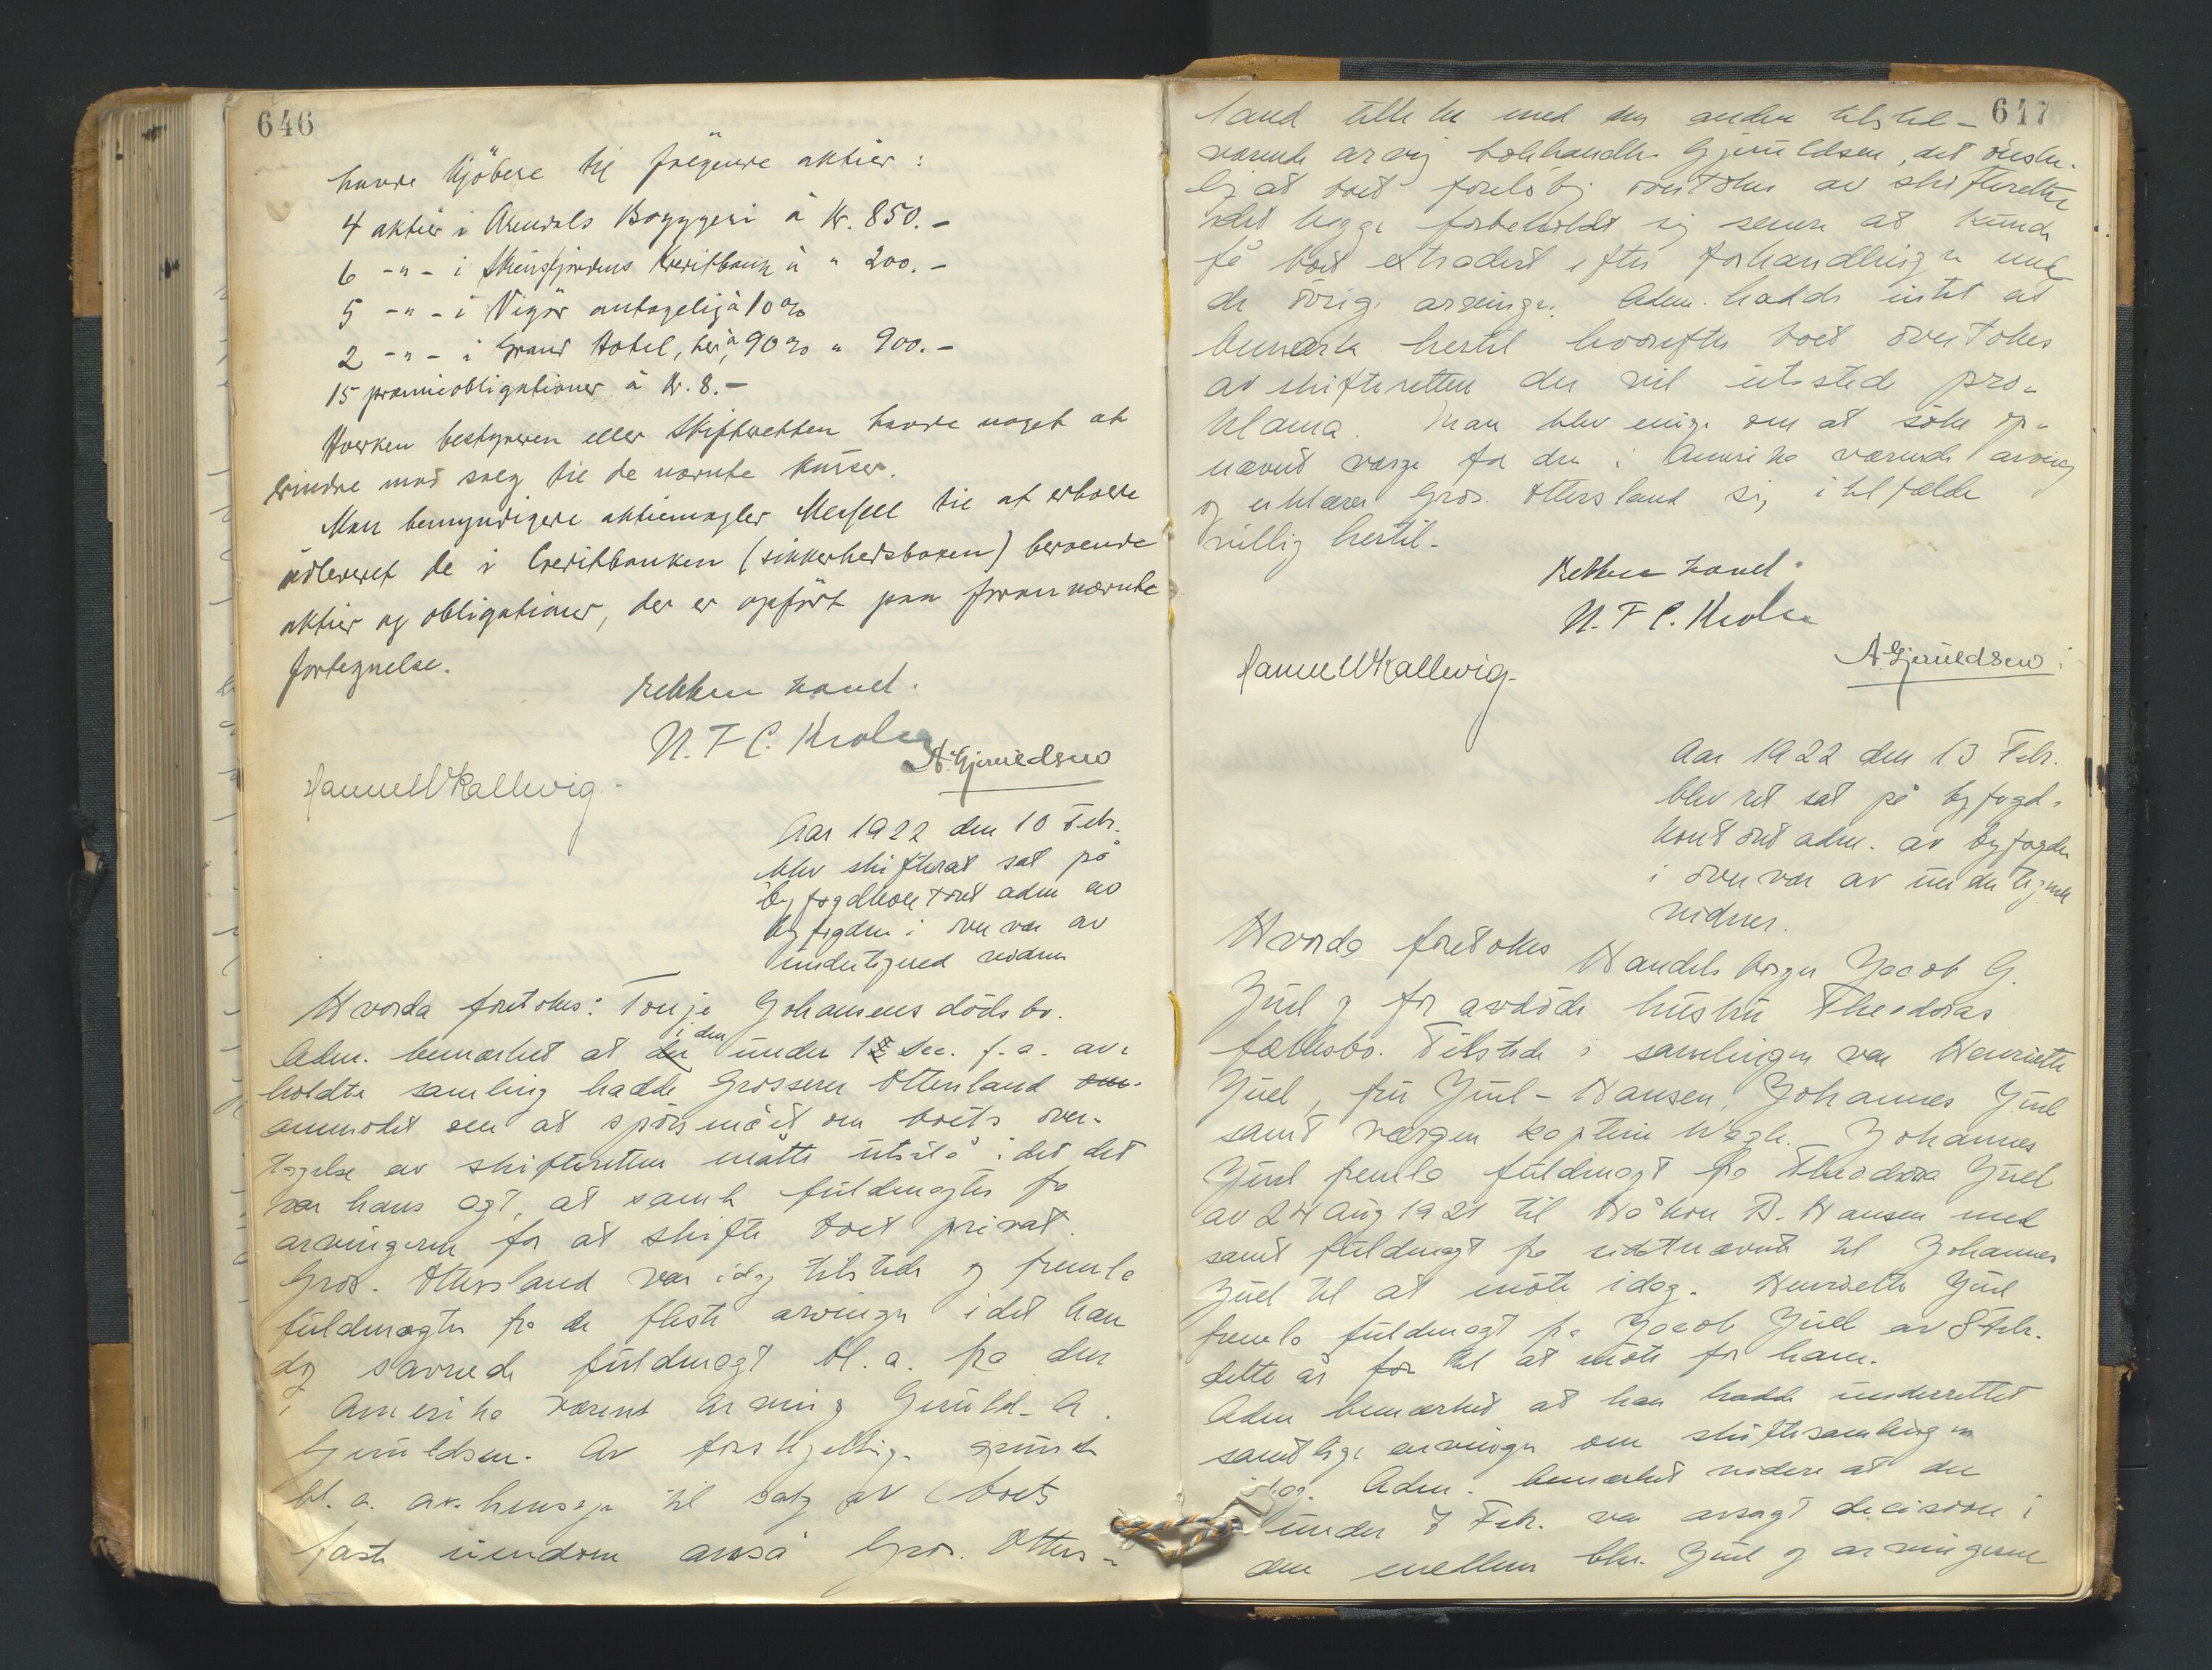 646
havde kjöbere til følgende aktier:
4 aktier i Arendals Bryggeri à Kr. 850.-
6 -"- i Skiensfjordens Kreditbank à " 200.-
5 -"- i Vigör antagelig à 10%
2 -"- i Grand Hotel, her, à 90% " 900.-
15 præmieobligationer à Kr. 8.-
Hverken bestyreren eller Skifteretten havde noget at
erindre mod salg til de nævnte kurser.
Man bemyndigede aktiemægler til at erholde
udleveret de i Creditbanken (sikkerhedsboxen) beroende
aktier og obligationer, der er opført paa foran nævnte
fortegnelse.
Retten hævet.
N. F C.
Hanne Kallevig.
A. Gjeruldsen
Aar 1922 den 10 Febr.
blev skifteret sat på
byfogdkontoret adm av
byfogden i overvær av
undertegned vidner
Hvorda foretokes: Tonje Johansens dödsbo.
Adm. bemærket at der i den under 12 Dec. f.a. av-
holdte samling hadde Grosserer Ottersland om-
anmodet om at spörsmålet om boets over-
tagelse av skifteretten måtte utstå idet det
var hans agt, at samle fuldmagter fra
arvingerne for at skifte boet privat.
Gros. Ottersland var idag tilstede og fremla
fuldmagter fra de fleste arvinger idet han
dog savnede fuldmagt bl. a. fra den
i Amerika værende arving Geruld A.
Gjeruldsen. Av forskjellige grunde
bl. a. av hensyn til salg av boets
faste eiendom anså Gros. Otters-
647
land tillike med den anden tilsted-
værende arving bokhandler Gjeruldsen, det önske-
lig at boet foreløbig overtokes av skifteretten
idet begge forbeholdt sig senere at kunde
få boet extradert efter forhandlinger med
de övrige arvinger. Adm. hadde intet at
bemærke hertil hvorefter boet overtokes
av skifteretten der vil utstede pro-
klama. Man blev enige om at söke op-
nævnt værge for den i Amerika værende arving
og erklærer Gros. Ottersland sig i tilfælde
villig hertil.
Retten hævet.
N. F C.
Hanne Kallevig.
A. Gjeruldsen
Aar 1922 den 13 Febr.
blev ret sat på byfogd-
kontoret adm. av byfogden
i overvær av undertegnede
vidner.
Hvorda foretokes Handelsborger Jacob G.
Juel og for avdöde hustru Theodoras
fællesbo. Tilstede i samlingen var Henriette
Juel, fru Juel-Hansen, Johannes Juel
samt værgen kaptein Wegle. Johannes
Juel fremla fuldmagt fra Theodora Juel
av 24 Aug 1921 til Håkon B. Hansen med
samt fuldmagt fra sidstnævnte til Johannes
Juel til at möte idag. Henriette Juel
fremla fuldmagt fra Jacob Juel av 8 Febr.
dette år for til at möte for ham.
Adm bemærket at han hadde underrettet
samtlige arvinger om skiftesamlingen
idag. Adm. bemærket videre at der
under 7 Febr. var avsagt decision i
den mellem Juel og arvingerne